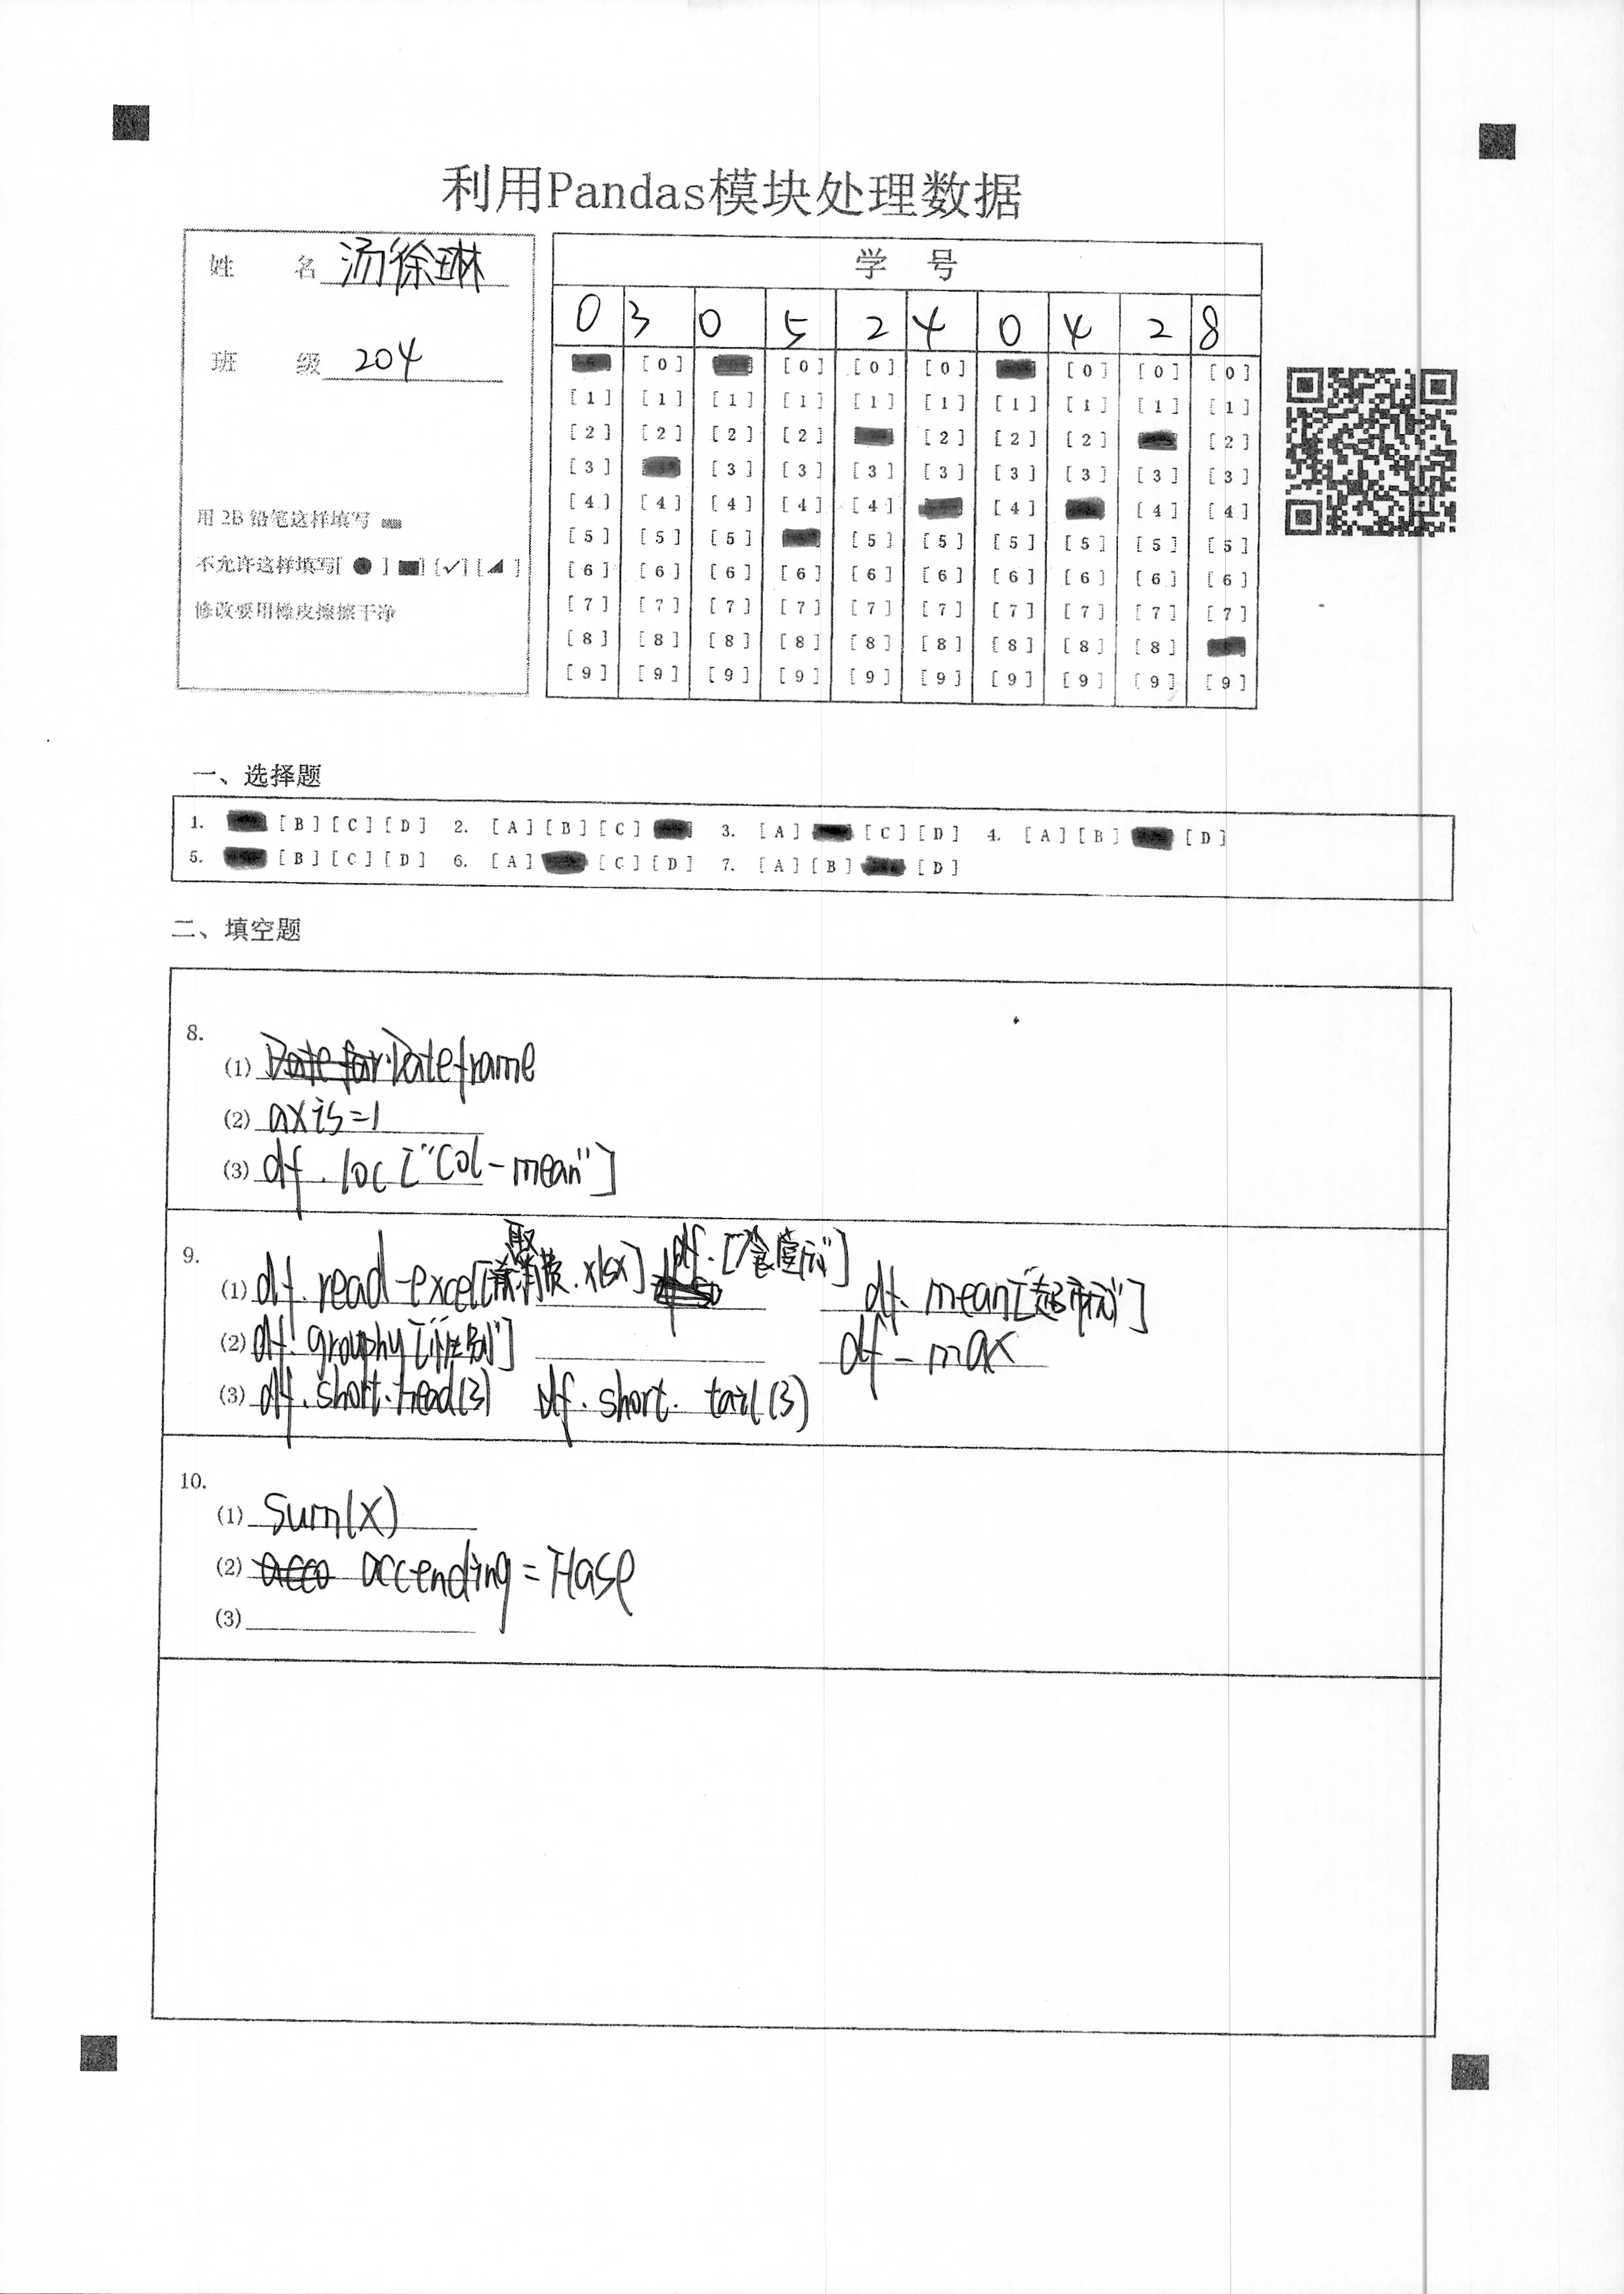 利用Pandas模块处理数据
姓 名 汤徐琳
班 级 204
用 2B 铅笔这样填写
不允许这样填写[ ● ] [■] [✓] [◢ ]
修改要用橡皮擦擦干净
学 号
0 3 0 5 2 4 0 4 2 8
[0] [0] [0] [0] [0] [0] [0]
[1] [1] [1] [1] [1] [1] [1] [1] [1] [1]
[2] [2] [2] [2] [2] [2] [2] [2]
[3] [3] [3] [3] [3] [3] [3] [3] [3]
[4] [4] [4] [4] [4] [4] [4] [4]
[5] [5] [5] [5] [5] [5] [5] [5] [5]
[6] [6] [6] [6] [6] [6] [6] [6] [6] [6]
[7] [7] [7] [7] [7] [7] [7] [7] [7] [7]
[8] [8] [8] [8] [8] [8] [8] [8] [8]
[9] [9] [9] [9] [9] [9] [9] [9] [9] [9]
一、选择题
1. [B] [C] [D] 2. [A] [B] [C] 3. [A] [C] [D] 4. [A] [B] [D]
5. [B] [C] [D] 6. [A] [C] [D] 7. [A] [B] [D]
二、填空题
8.
(1) Dateframe
(2) axis=1
(3) df.loc["Col-mean"]
9.
(1) df.read-excel[ 消费.xlsx] df.["食堂元"] df.mean["超市元"]
(2) df.grouphy["性别"] df-max
(3) df.short.head(3) df.short.tail(3)
10.
(1) sum(x)
(2) accending=Flase
(3)